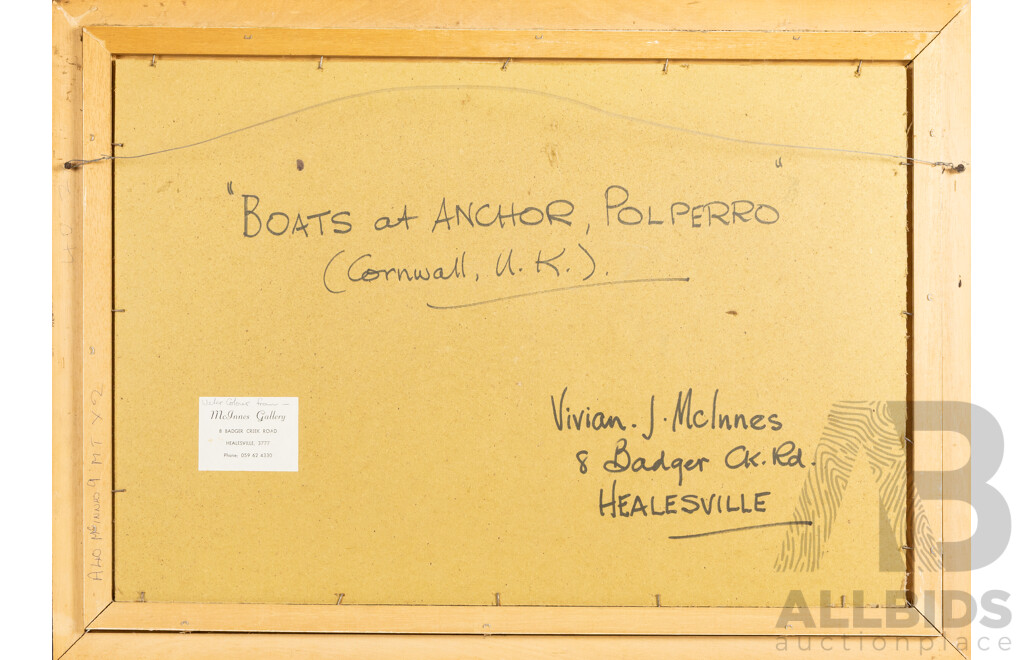 "BOATS at ANCHOR, POLPERRO"
(Cornwall, U.K.).
Water Colour from —
McInnes Gallery
8 BADGER CREEK ROAD
HEALESVILLE, 3777
Phone: 059 62 4330
Vivian. J. McInnes
8 Badger Ck. Rd.
HEALESVILLE
X 2
ALLBIDS
auctionplace